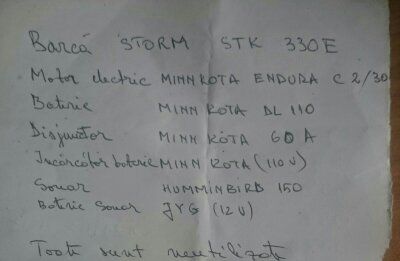 Barcă STORM STK 330E
Motor electric MINN KOTA ENDURA C2/30
Baterie MINN KOTA DL 110
Disjunctor MINN KOTA 60A
Incărcător baterie MINN KOTA (110 V)
Sonar HUMMINBIRD 150
Baterie Sonar JYG (12 V)
Toate sunt neutilizate